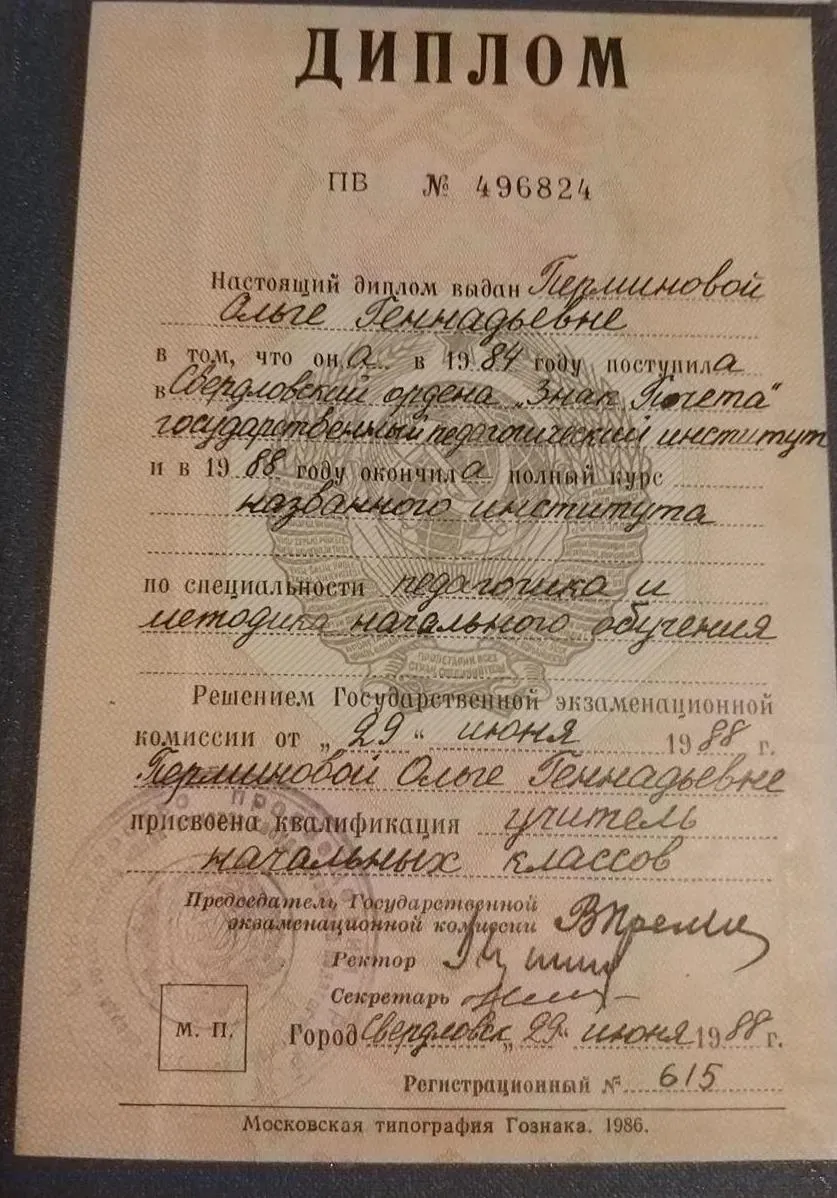 ДИПЛОМ
ПВ № 496824
Настоящий диплом выдан Перминовой
Ольге Геннадьевне
в том, что она в 1984 году поступила
в Свердловский ордена „Знак Почета"
государственный педагогический институт
и в 1988 году окончила полный курс
названного института
по специальности педагогика и
методика начального обучения
Решением Государственной экзаменационной
комиссии от „29" июня 1988 г.
Перминовой Ольге Геннадьевне
присвоена квалификация учитель
начальных классов
Председатель Государственной
экзаменационной комиссии
Ректор
Секретарь
М. П. Город Свердловск „29" июня 1988 г.
Регистрационный № 615
Московская типография Гознака. 1986.